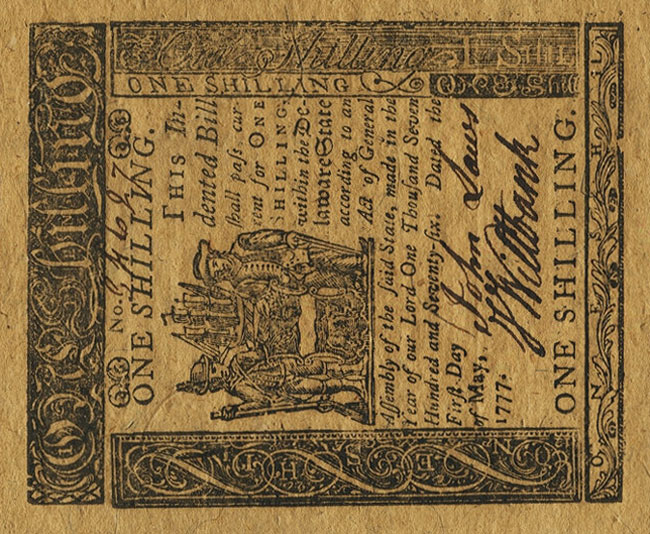 One Shilling
No.
ONE SHILLING.
THIS In-
dented Bill
ſhall paſs cur-
rent for ONE
SHILLING,
within the De-
laware State
according to an
Act of General
Aſſembly of the ſaid State, made in the
Year of our Lord One Thouſand Seven
Hundred and Seventy-ſix. Dated the
Firſt Day
of May,
1777.
John Laws
J Wiltbank
ONE SHILLING.
ONE SHILL
ONE SHILLING
One Shilling
ONE SHILLING